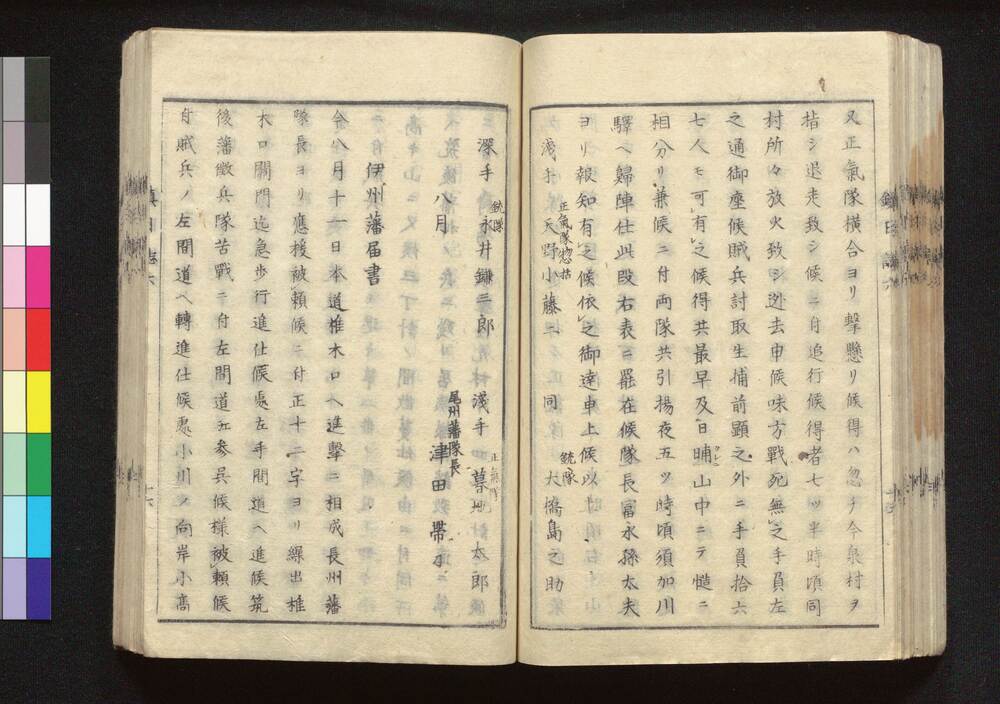 又正氣隊横合ヨリ撃懸リ候得ハ忽チ今泉村ヲ
指シ退走致シ候ニ付追行候得者七ッ半時頃同
村所々放火致シ逃去申候味方戰死無之手負左
之通御座候賊兵討取生捕前顕之外ニ手負拾六
七人モ可有之候得共最早及日晡山中ニテ慥ニ
クレニ
相分リ兼候ニ付両隊共引揚夜五ッ時頃須加川
驛ヘ歸陣仕此段右表ニ罷在候隊長冨永孫太夫
ヨリ報知有之候依之御達申上候以
正氣隊惣括 銃隊
浅手 天野小藤二 同 大橋島之助
銃隊 正氣隊
深手 永井鎌三郎 浅手 墓地太郎
八月 尾州藩隊長 津田帯刀
伊州藩届書
今八月十一日本道椎木口ヘ進撃ニ相成長州藩
隊長ヨリ應援被頼候ニ付正十二字ヨリ繰出椎
木口關門迄急歩行進仕候處左手間道ヘ進候筑
後藩徴兵隊苦戰ニ付左間道江参呉候様被頼候
付賊兵ノ左間道ヘ轉進仕候處小川ノ向岸小高